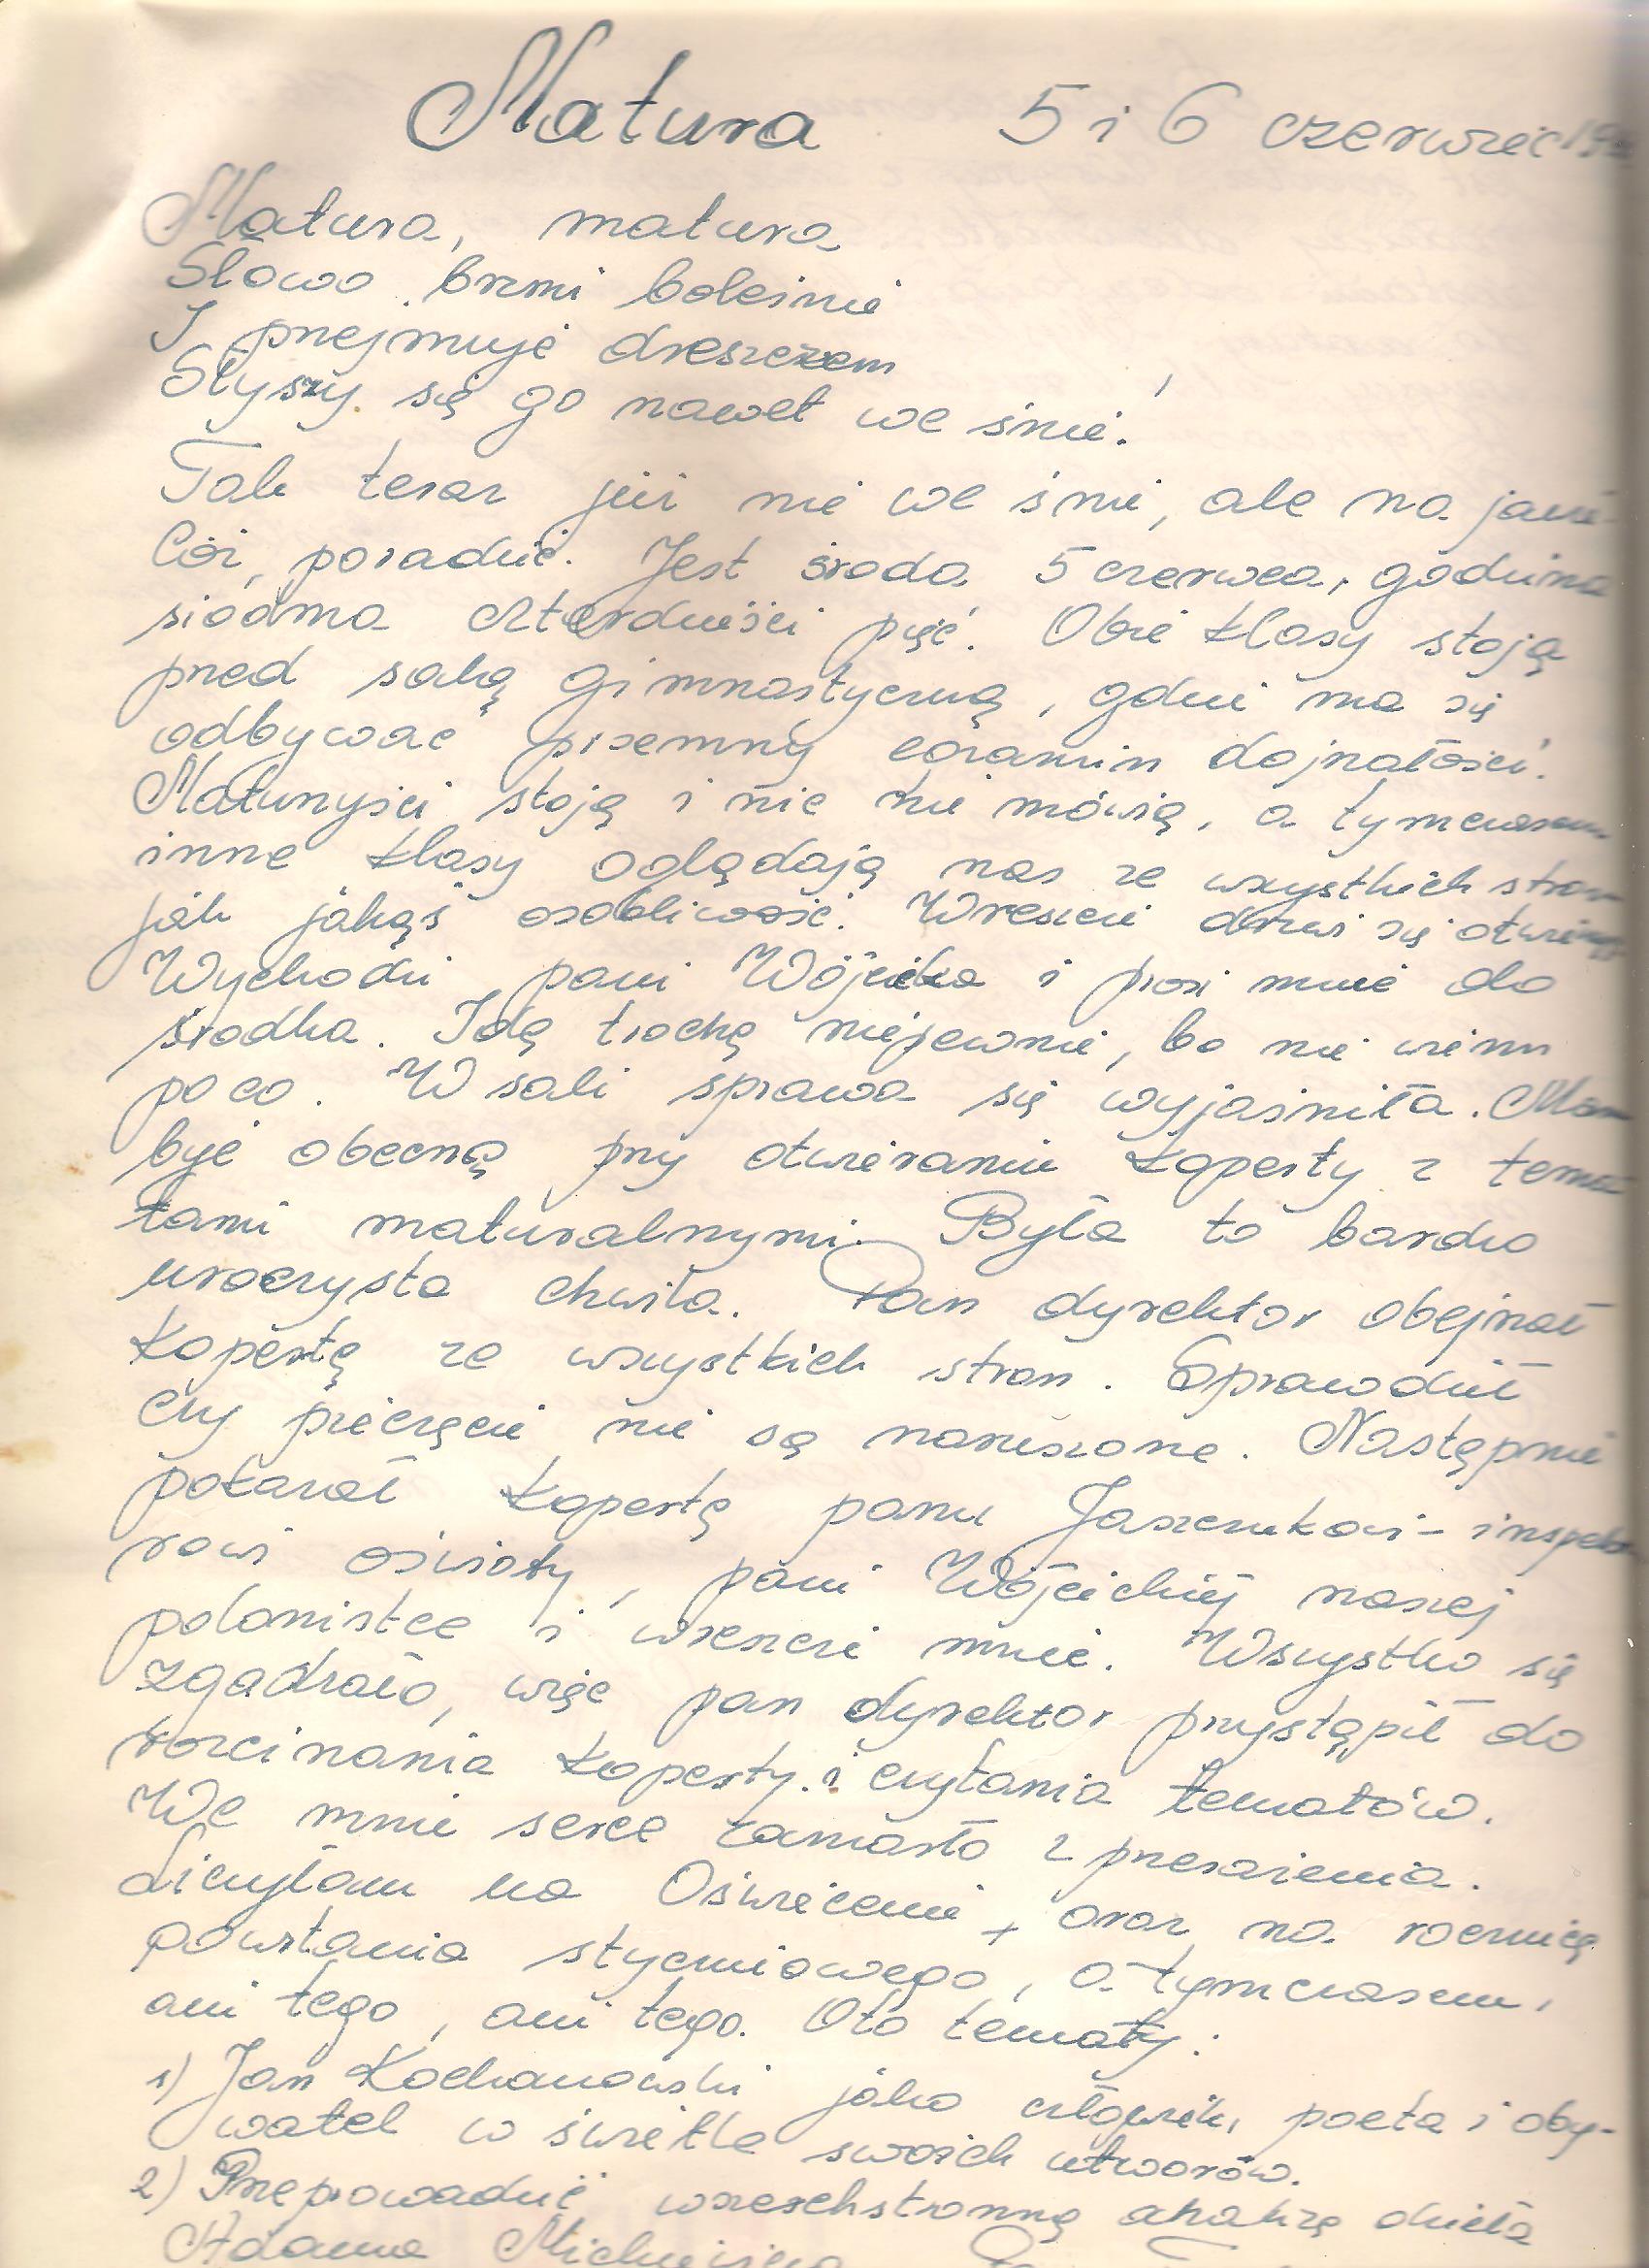 Matura 5 i 6 czerwiec
Matura, matura
Słowo brzmi boleśnie
I przejmuje dreszczem
Słyszy się go nawet we śnie!
Tak teraz już nie we śnie, ale na jawie.
Cóż, poradzić. Jest środa 5 czerwca, godzina
siódma czterdzieści pięć. Obie klasy stoją
przed salą gimnastyczną, gdzie ma się
odbywać pisemny egzamin dojrzałości.
Maturzyści stoją i nic nie mówią, a tymczasem
inne klasy oglądają nas ze wszystkich stron
jak jakąś osobliwość. Wreszcie drzwi się otwierają
Wychodzi pani Wójcicka i prosi mnie do
środka. Idę trochę niepewnie, bo nie wiem
po co. W sali sprawa się wyjaśniła. Mam
być obecną przy otwieraniu koperty z tema
tami maturalnymi. Była to bardzo
uroczysta chwila. Pan dyrektor obejrzał
kopertę ze wszystkich stron. Sprawdził
czy pieczęcie nie są naruszone. Następnie
pokazał kopertę panu Jaszczukowi - inspekto
rowi oświaty, pani Wójcickiej naszej
polonistce i wreszcie mnie. Wszystko się
zgadzało, więc pan dyrektor przystąpił do
rozcinania koperty i czytania tematów.
We mnie serce zamarło z przerażenia.
Liczyłam na Oświecenie, oraz na rocznicę
powstania styczniowego, a tymczasem,
ani tego, ani tego. Oto tematy:
1) Jan Kochanowski jako człowiek, poeta i oby-
watel w świetle swoich utworów.
2) Przeprowadzić wszechstronną analizę dzieła
Adama Mickiewicza